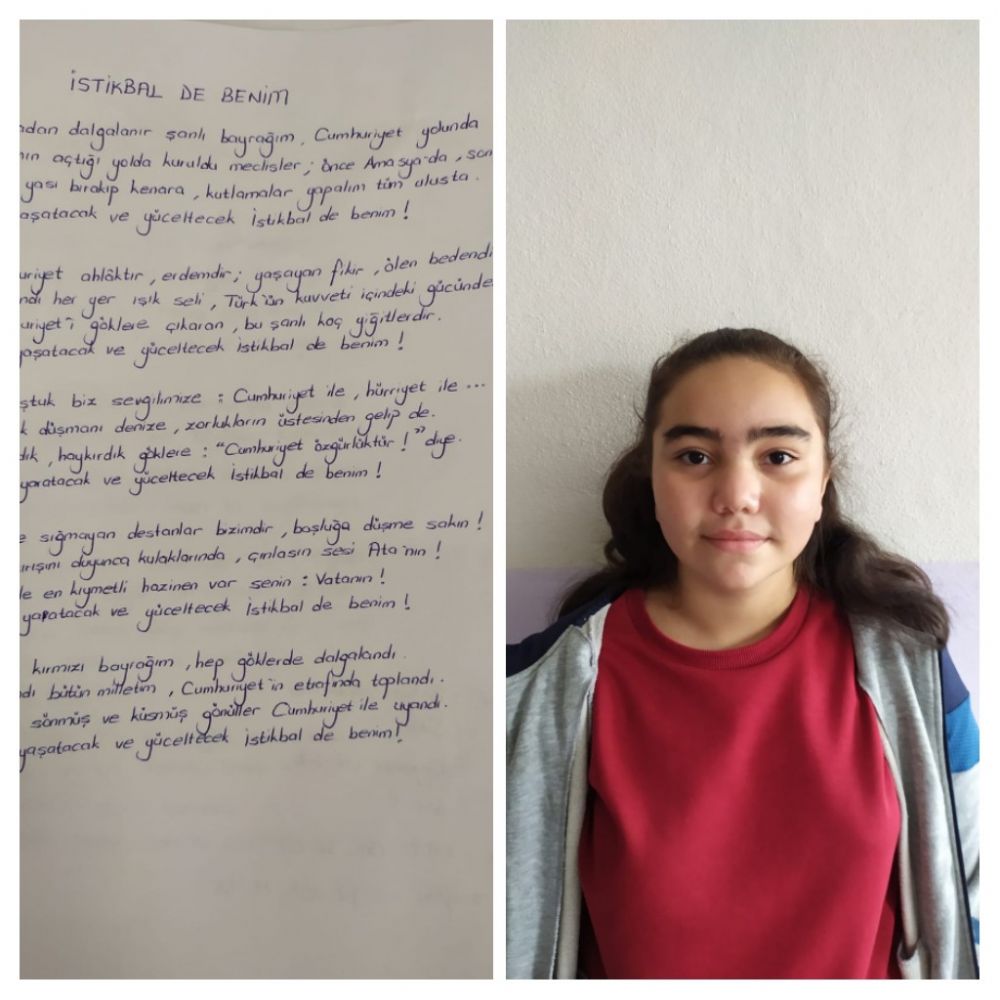 İSTİKBAL DE BENİM
dalgalanır şanlı bayrağım, Cumhuriyet yolunda
açtığı yolda kuruldu meclisler; önce Amasya'da, son
yası bırakıp kenara, kutlamalar yapalım tüm ulusta.
aşatacak ve yüceltecek İstikbal de benim!
uriyet ahlâktır, erdemdir; yaşayan fikir, ölen bedendi
ndı her yer ışık seli, Türk'ün kuvveti içindeki gücünde
uriyet'i göklere çıkaran, bu şanlı koç yiğitlerdir.
yaşatacak ve yüceltecek istikbal de benim!
ştuk biz sevgilimize: Cumhuriyet ile, hürriyet ile ...
k düşmanı denize, zorlukların üstesinden gelip de.
dik, haykırdık göklere: "Cumhuriyet özgürlüktür!" diye.
yaratacak ve yüceltecek İstikbal de benim!
e sığmayan destanlar bizimdir, boşluğa düşme sakın!
rışını duyunca kulaklarında, çınlasın sesi Ata'nın!
le en kıymetli hazinen var senin: Vatanın!
yaratacak ve yüceltecek İstikbal de benim!
kırmızı bayrağım, hep göklerde dalgalandı.
dı bütün milletim, Cumhuriyet'in etrafında toplandı.
sönmüş ve küsmüş gönüller Cumhuriyet ile uyandı.
yaşatacak ve yüceltecek istikbal de benim!